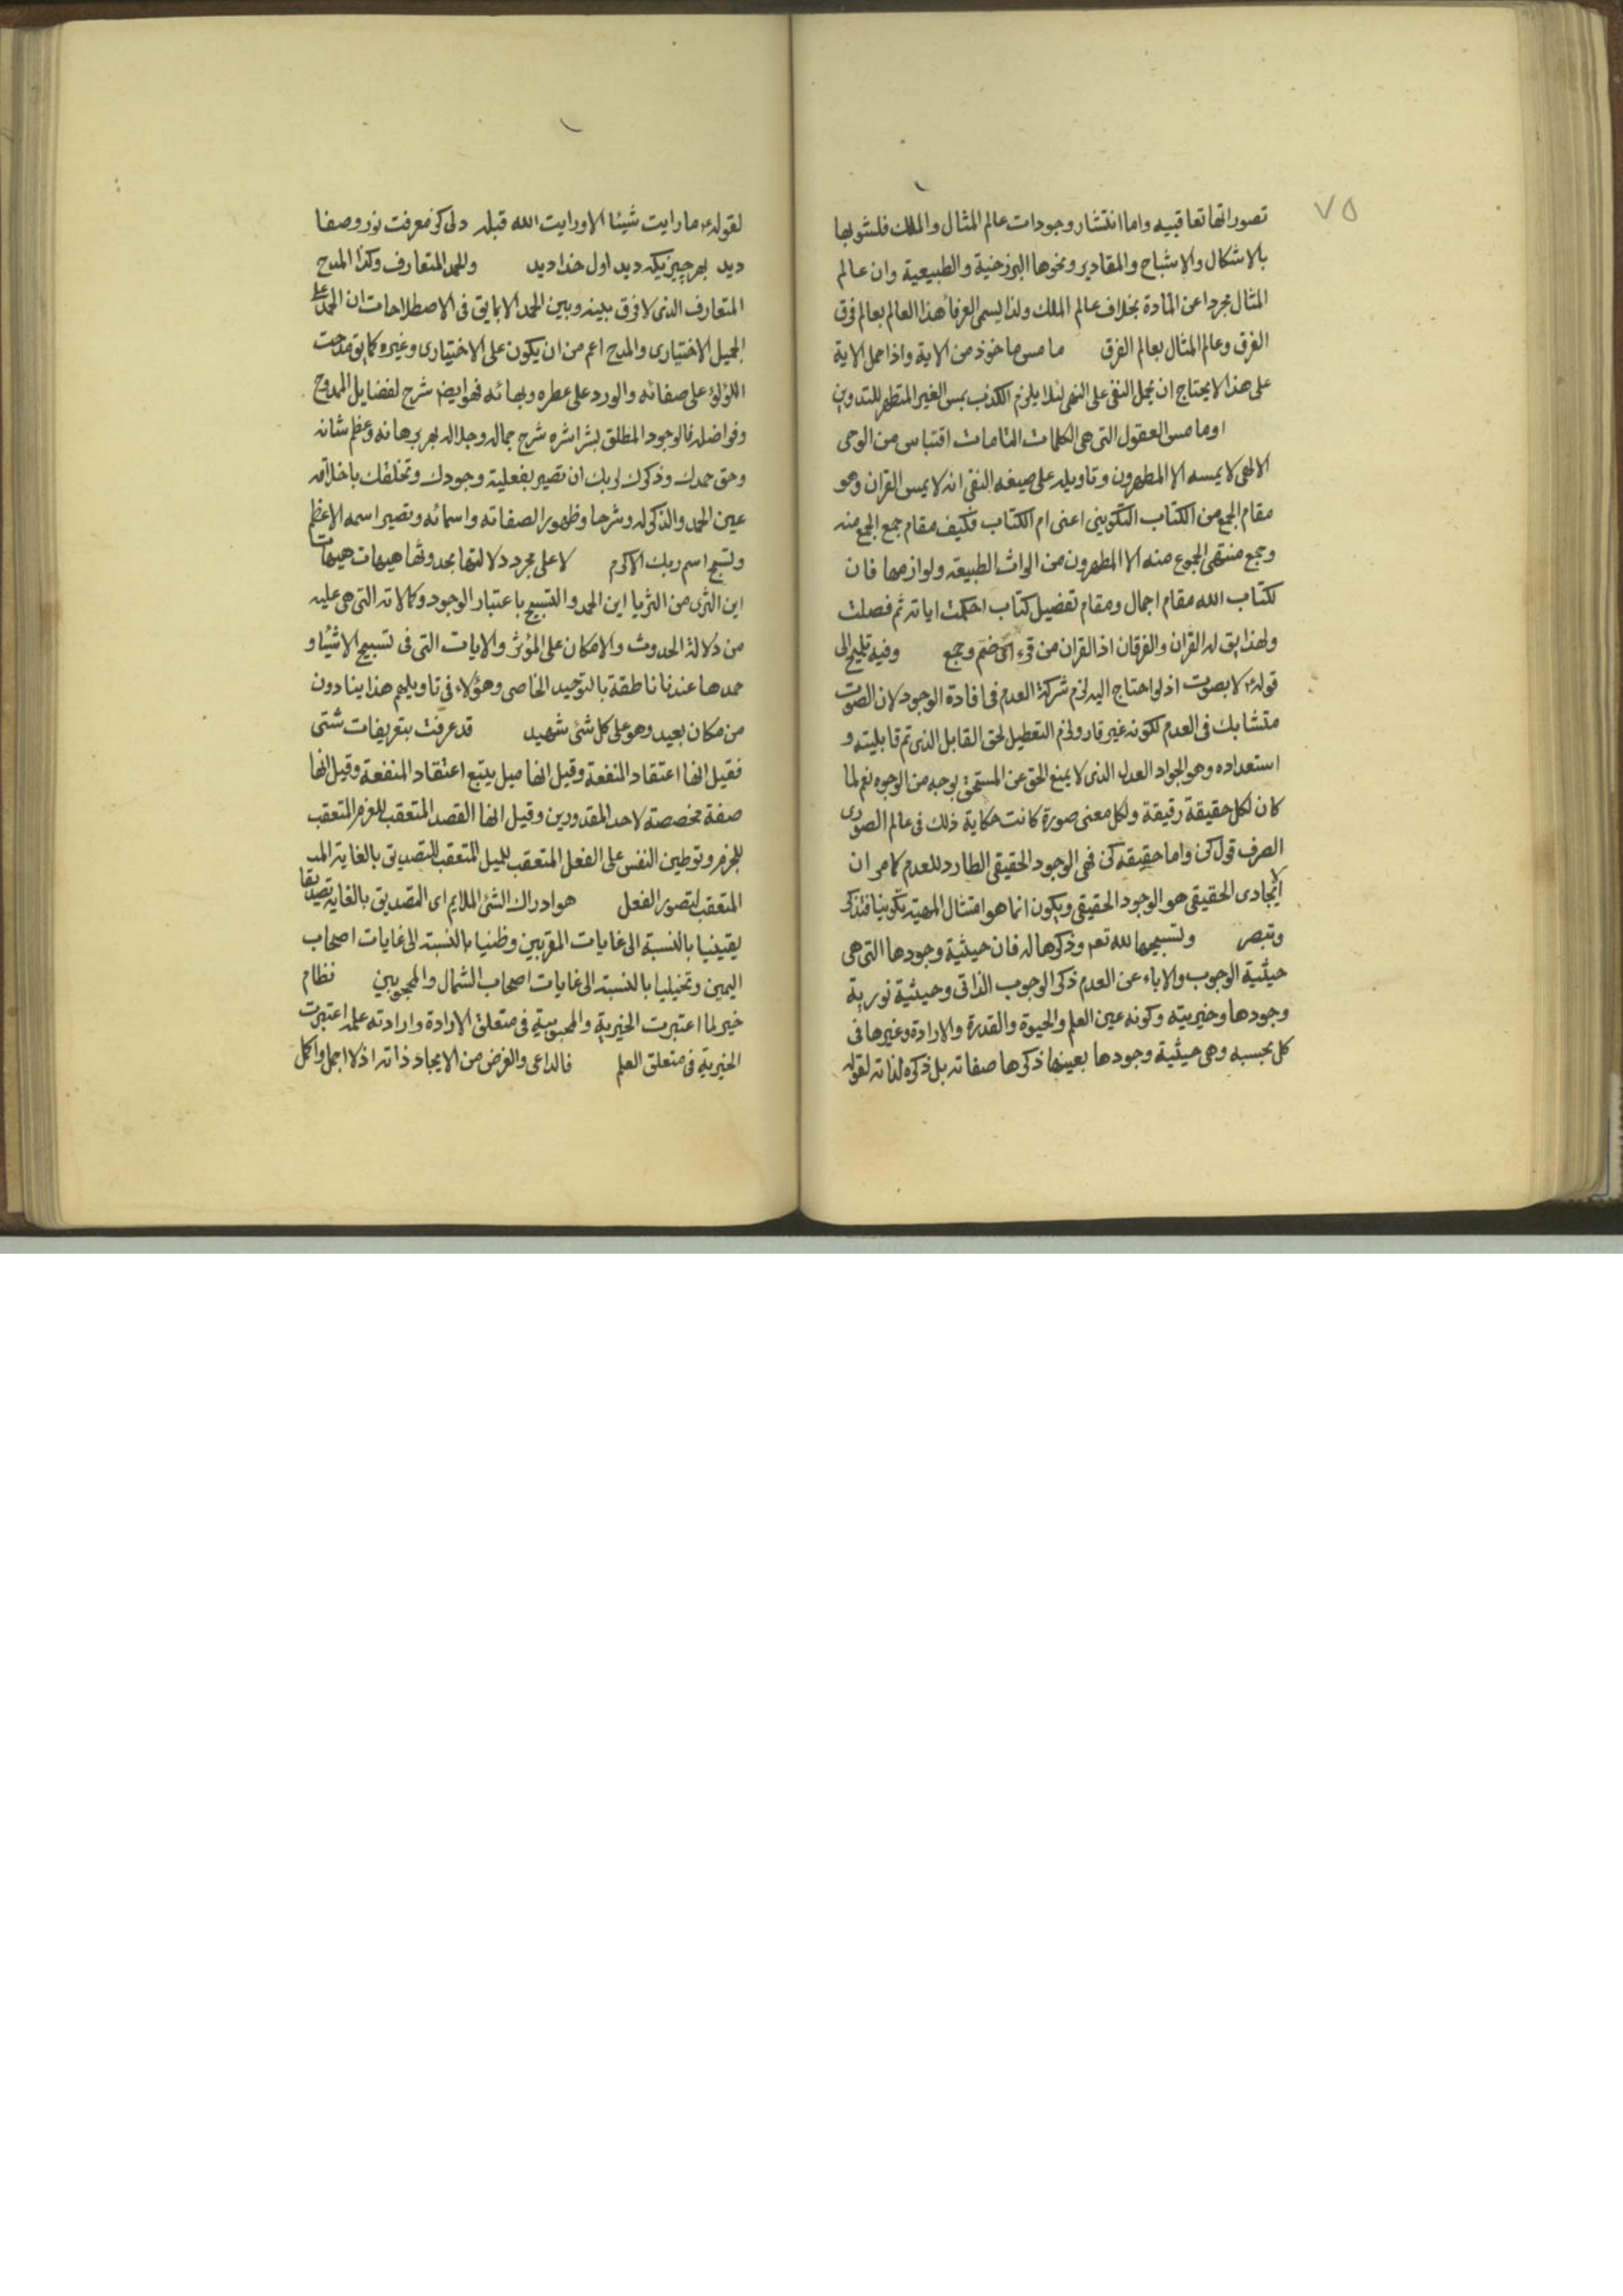 ٧٥
تصوراتها تعاقبیه واما انتشار وجودات عالم المثال والملك فلشوبها
بالاشکال والاشباح والمقادیر ونحوها البرزخیة والطبیعیة وان عالم
المثال مجردا عن المادة بخلاف عالم الملك ولذا یسمی العرفأ هذا العالم بعالم فرق
الفرق وعالم المثال بعالم الفرق مامس ماخوذ من الایة واذا حمل الایة
علی هذا لایحتاج ان یحمل النفی علی النهی لئلا یلزم الکذب بمس الغیر المتطهر للتدوین
اومامس العقول التی هی الکلمات التامات اقتباس من الوحی
الالهی لایمسه الا المطهرون وتاویله علی صیغه النفی انه لایمس القران وهو
مقام الجمع من الکتاب التکوینی اعنی ام الکتاب فکیف مقام جمع الجمع منه
وجمع منتهی الجموع منه الا المطهرون من الواث الطبیعة ولوازمها فان
لکتاب الله مقام اجمال ومقام تفصیل کتاب احکمت ایاته ثم فصلت
ولهذا یق له القران والفرقان اذ القران من قرء ای ضم وجمع وفیه تلمیح الی
قوله ع لا بصوت اذ لو احتاج الیه لزم شرکة العدم فی افادة الوجود لان الصوت
متشابك فی العدم لکونه غیر قار ولزم التعطیل لحق القابل الذی تم قابلیته و
استعداده وهو الجواد العدل الذی لا یمنع الحق عن المستحق بوجه من الوجوه نعم لما
کان لکل حقیقة رقیقة ولکل معنی صورة کانت حکایة ذلك فی عالم الصوری
الصرف قول کن واما حقیقه کن فهی الوجود الحقیقی الطارد للعدم کما مر ان
الایجادی الحقیقی هو الوجود الحقیقی ویکون انما هو امتثال المهیة تکوینیا فتذکر
وتبصر وتسبیحها لله تعم وذکرها له فان حیثیة وجودها التی هی
حیثیة الوجوب والاباء عن العدم ذکر الوجوب الذاتی وحیثیة نوریة
وجودها وخیریته وکونه عین العلم والحیوة والقدرة والارادة وغیرها فی
کل بحسبه وهی حیثیة وجودها بعینها ذکرها صفاته بل ذکره لذاته لقوله
لقوله ع ما رایت شیئا الا ورایت الله قبله دلی کز معرفت نور وصفا
دید بهر چیزیکه دید اول خدا دید وللحمد المتعارف وکذا المدح
المتعارف الذی لا فرق بینه وبین الحمد الا بما یق فی الاصطلاحات ان الحمد علی
الجمیل الاختیاری والمدح اعم من ان یکون علی الاختیاری وغیره کما یق مدحت
اللؤلؤ علی صفائه والورد علی عطره وبهائه فهو ایضم شرح لفضایل الممدوح
وفواضله فالوجود المطلق بشراشره شرح جماله وجلاله بهر برهانه وعظم شانه
وحق حمدك وذکرك لربك ان تصیر بفعلیة وجودك وتخلقك باخلاقه
عین الحمد والذکر له وشرحا وظهورا لصفاته واسمائه وتصیر اسمه الاعظم
وتسبح اسم ربك الاکرم لا علی مجرد دلالتها بحدوثها هیهات هیهات
این الثری من الثریا این الحمد والتسبیح باعتبار الوجود وکمالاته التی هی علیه
من دلالة الحدوث والامکان علی المؤثر والایات التی فی تسبیح الاشیاء و
حمدها عندنا ناطقة بالتوحید الخاصی وهؤلاء فی تاویلهم هذا ینادون
من مکان بعید وهو علی کل شئ شهید قد عرفت بتعریفات شتی
فقیل انها اعتقاد المنفعة وقیل انها میل یتبع اعتقاد المنفعة وقیل انها
صفة مخصصة لاحد المقدورین وقیل انها القصد المتعقب للعزم المتعقب
للجزم وتوطین النفس علی الفعل المتعقب للمیل المتعقب للتصدیق بالغایة
المتعقب لتصور الفعل هو ادراك الشئ الملایم ای التصدیق بالغایة تصدیقا
یقینیا بالنسبة الی غایات المقربین وظنیا بالنسبة الی غایات اصحاب
الیمین وتخیلیا بالنسبة الی غایات اصحاب الشمال والمحجوبین نظام
خیر لما اعتبرت الخیریة والمحبوبیة فی متعلق الارادة وارادته علمه اعتبرت
الخیریة فی متعلق العلم فالداعی والغرض من الایجاد ذاته اذ لا اجمل واکمل